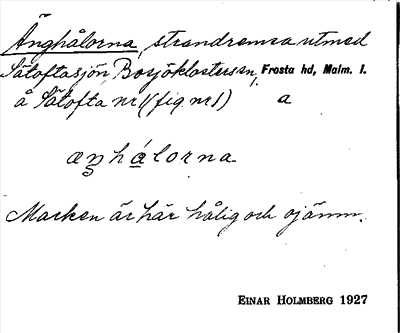 Änghålorna, strandremsa utmed
Sätoftasjön, Bosjöklosters sn, Frosta hd, Malm. l.
å Sätofta nr 1 (fig nr 1) a
æŋhálorna
Marken är här hålig och ojämn.
EINAR HOLMBERG 1927